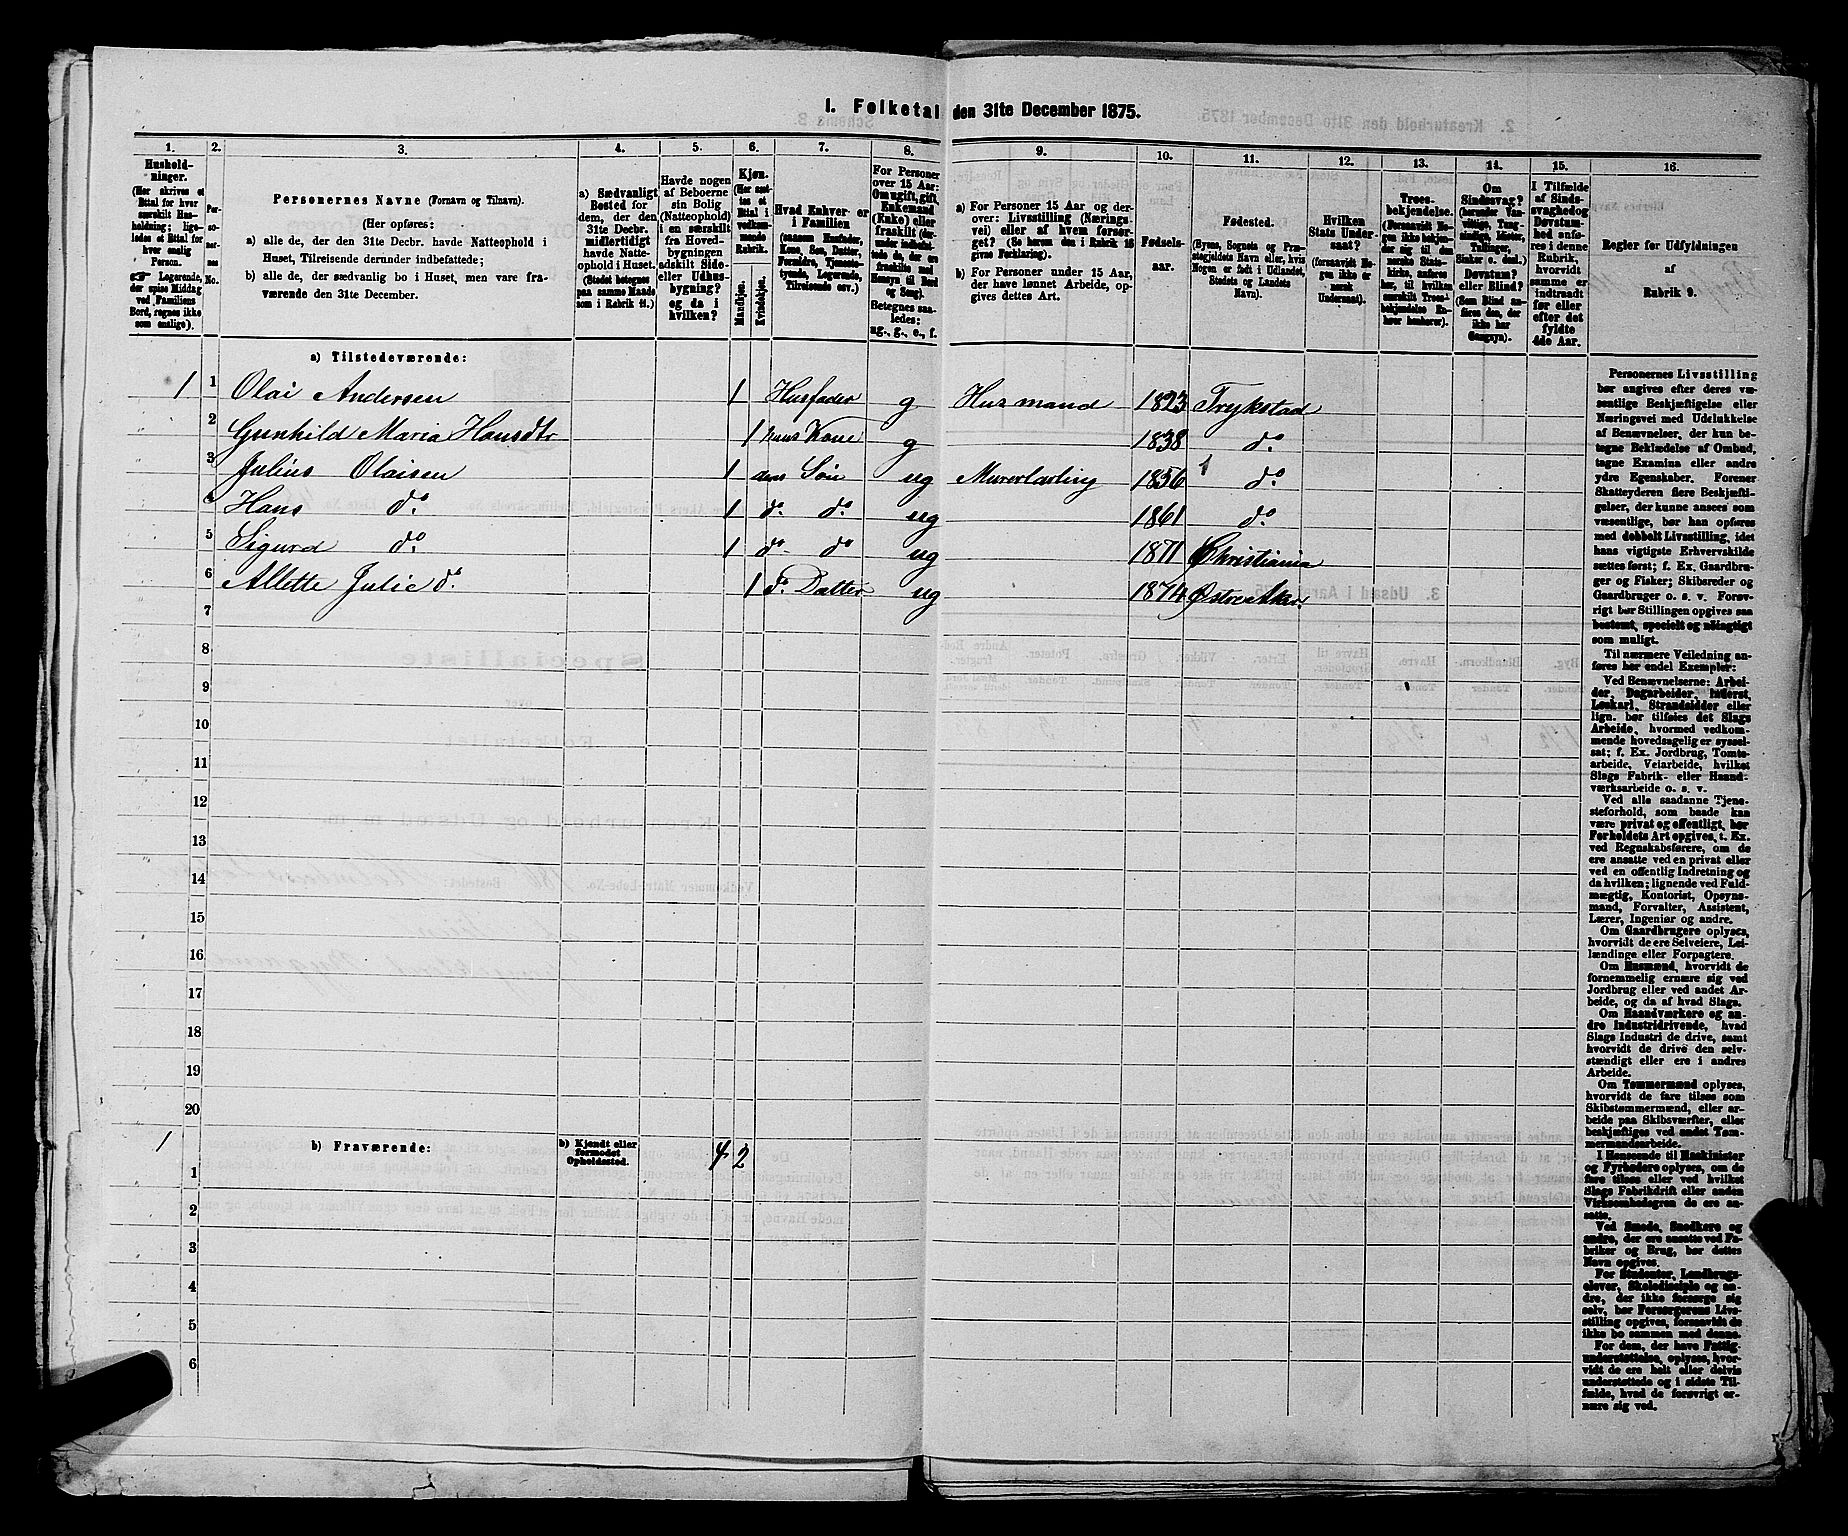 I. Folketal den 31te December 1875.
1. 2. 3. 4. 5. 6. 7. 8. 9. 10. 11. 12. 13. 14. 15. 16.
Hushold-
ninger.
(Her skrives et
Ettal for hver
særskilt Hus-
holdning; lige-
ledes et Ettal for
hver enslig
Person.
☞ Logerende,
der spise Middag
ved Familiens
Bord, regnes ikke
som enslige).
Per-
so-
ner-
nes
No.
Personernes Navne (Fornavn og Tilnavn).
(Her opføres:
a) alle de, der den 31te Decbr. havde Natteophold i
Huset, Tilreisende derunder indbefattede;
b) alle de, der sædvanlig bo i Huset, men vare fra-
værende den 31te December.
a) Sædvanligt
Bosted for
dem, der den
31te Decbr.
midlertidigt
havde Natte-
ophold i Huset.
(Stedet betegnes
paa samme Maade
som i Rubrik 11.)
Havde nogen
af Beboerne
sin Bolig
(Natteophold)
i en særskilt
fra Hoved-
bygningen
adskilt Side-
eller Udhus-
bygning?
og da i
hvilken?
Kjøn.
(Her sæt-
tes et
Ettal i
vedkom-
mende
Rubrik.
Mandkjøn.
Kvindekjøn.
Hvad Enhver er
i Familien
(saasom Husfader,
Kone, Søn, Datter,
Forældre, Tjeneste-
tyende, Logerende,
Tilreisende osv.)
For Personer
over 15 Aar:
Om ugift, gift,
Enkemand
(Enke) eller
fraskilt (der-
under indbefat-
tede de, der ere
fraskilte med
Hensyn til Bord
og Seng).
Betegnes saa-
ledes:
ug., g., e., f.
a) For Personer 15 Aar og der-
over: Livsstilling (Nærings-
vei) eller af hvem forsør-
get? (Se herom den i Rubrik 16
givne Forklaring).
b) For Personer under 15 Aar,
der have lønnet Arbeide, op-
gives dettes Art.
Fødsels-
aar.
Fødested.
(Byens, Sognets og Præ-
stegjeldets Navn eller, hvis
Nogen er født i Udlandet,
Stedets og Landets
Navn).
Hvilken
Stats Under-
saat?
(forsaavidt No-
gen ikke er
norsk
Undersaat).
Troes-
bekjendelse.
(Forsaavidt No-
gen ikke bekjen-
der sig til den
norske Stats-
kirke, anføres
her, til hvilken
særskilt Troes-
bekjendelse En-
hver henhører).
Om
Sindssvag?
(herunder Van-
vittige, Tung-
sindige, Idioter,
Tullinger,
Sinker o. desl.)
Døvstum?
eller Blind?
(Som Blind an-
føres den, der
ikke har
Gangsyn).
I Tilfælde
af Sinds-
svaghed og
Døvstum-
hed anfø-
res i denne
Rubrik,
hvorvidt
samme er
indtraadt
før eller
efter det
fyldte
4de Aar.
Regler for Udfyldningen
af
Rubrik 9.
a) Tilstedeværende:
1 1 Olai Andersen 1 Husfader g Husmand 1823 Trykstad
2 Gunhild Maria Hansdtr 1 hans Kone g 1838 do
3 Julius Olaisen 1 Søn ug Murerlærling 1856 do
4 Hans do 1 do do ug 1861 do
5 Sigurd do 1 do do ug 1871 Christiania
6 Allette Julie do 1 do Datter ug 1874 Østre Aker
7
8
9
10
11
12
13
14
15
16
17
18
19
20
1 b) Fraværende: b) Kjendt eller
formodet
Opholdssted. 4 2
1
2
3
4
5
6
Personernes Livsstilling
bør angives efter deres væ-
sentlige Beskjæftigelse eller
Næringsvei med Udelukkelse
af Benævnelser, der kun be-
tegne Beklædelse af Ombud,
tagne Examina eller andre
ydre Egenskaber. Forener
Skatteyderen flere Beskjæfti-
gelser, der kunne ansees som
væsentlige, bør han opføres
med dobbelt Livsstilling, idet
hans vigtigste Erhvervskilde
sættes først; f. Ex. Gaardbru-
ger og Fisker; Skibsreder og
Gaardbruger o. s. v. Forøv-
rigt bør Stillingen opgives saa
bestemt, specielt og nøiagtigt
som muligt.
Til nærmere Veiledning an-
føres her endel Exempler:
Ved Benævnelserne: Arbei-
der, Dagarbeider, Inderst,
Løskarl, Strandsidder eller
lign. bør tilføies det Slags
Arbeide, hvormed vedkom-
mende hovedsagelig er syssel-
sat; f. Ex. Jordbrug, Tomte-
arbeide, Veiarbeide, hvilket
Slags Fabrik- eller Haand-
værksarbeide o. s. v.
Ved alle saadanne Tjene-
steforhold, som baade kan
være privat og offentligt, bør
Forholdets Art opgives, t. Ex.
ved Regnskabsførere, om de
ere ansatte ved en privat eller
ved en offentlig Indretning og
da hvilken; lignende ved Fuld-
mægtig, Kontorist, Opsyns-
mand, Forvalter, Assistent,
Lærer, Ingeniør og andre.
Om Gaardbrugere oplyses,
hvorvidt de ere Selveiere, Lei-
lændinge eller Forpagtere.
Om Husmænd, hvorvidt de
fornemmelig ernære sig ved
Jordbrug eller ved andet Ar-
beide, og da af hvad Slags.
Om Haandværkere og an-
dre Industridrivende, hvad
Slags Industri de drive, samt
hvorvidt de drive den selv-
stændigt eller ere i andres
Arbeide.
Om Tømmermænd oplyses,
hvorvidt de fare tilsøs som
Skibstømmermænd, eller ar-
beide paa Skibsværfter, eller
beskjæftiges ved andet Tøm-
mermandsarbeide.
I Henseende til Maskinister
og Fyrbødere oplyses, om de
fare tilsøs eller ved hvilket
Slags Fabrikdrift eller anden
Virksomhedsgren de ere an-
satte.
Ved Smede, Snedkere og
andre, der ere ansatte ved Fa-
briker og Brug, bør dettes
Navn opgives.
For Studenter, Landbrugs-
elever, Skoledisciple og an-
dre, der ikke forsørge sig
selv, bør Forsørgerens Livs-
stilling opgives, forsaavidt de
ikke bo sammen med denne.
For dem, der have Fattig-
understøttelse, oplyses, hvor-
vidt de ere helt eller delvis
understøttede og i sidste Til-
fælde, hvad de forøvrigt er-
nære sig ved.